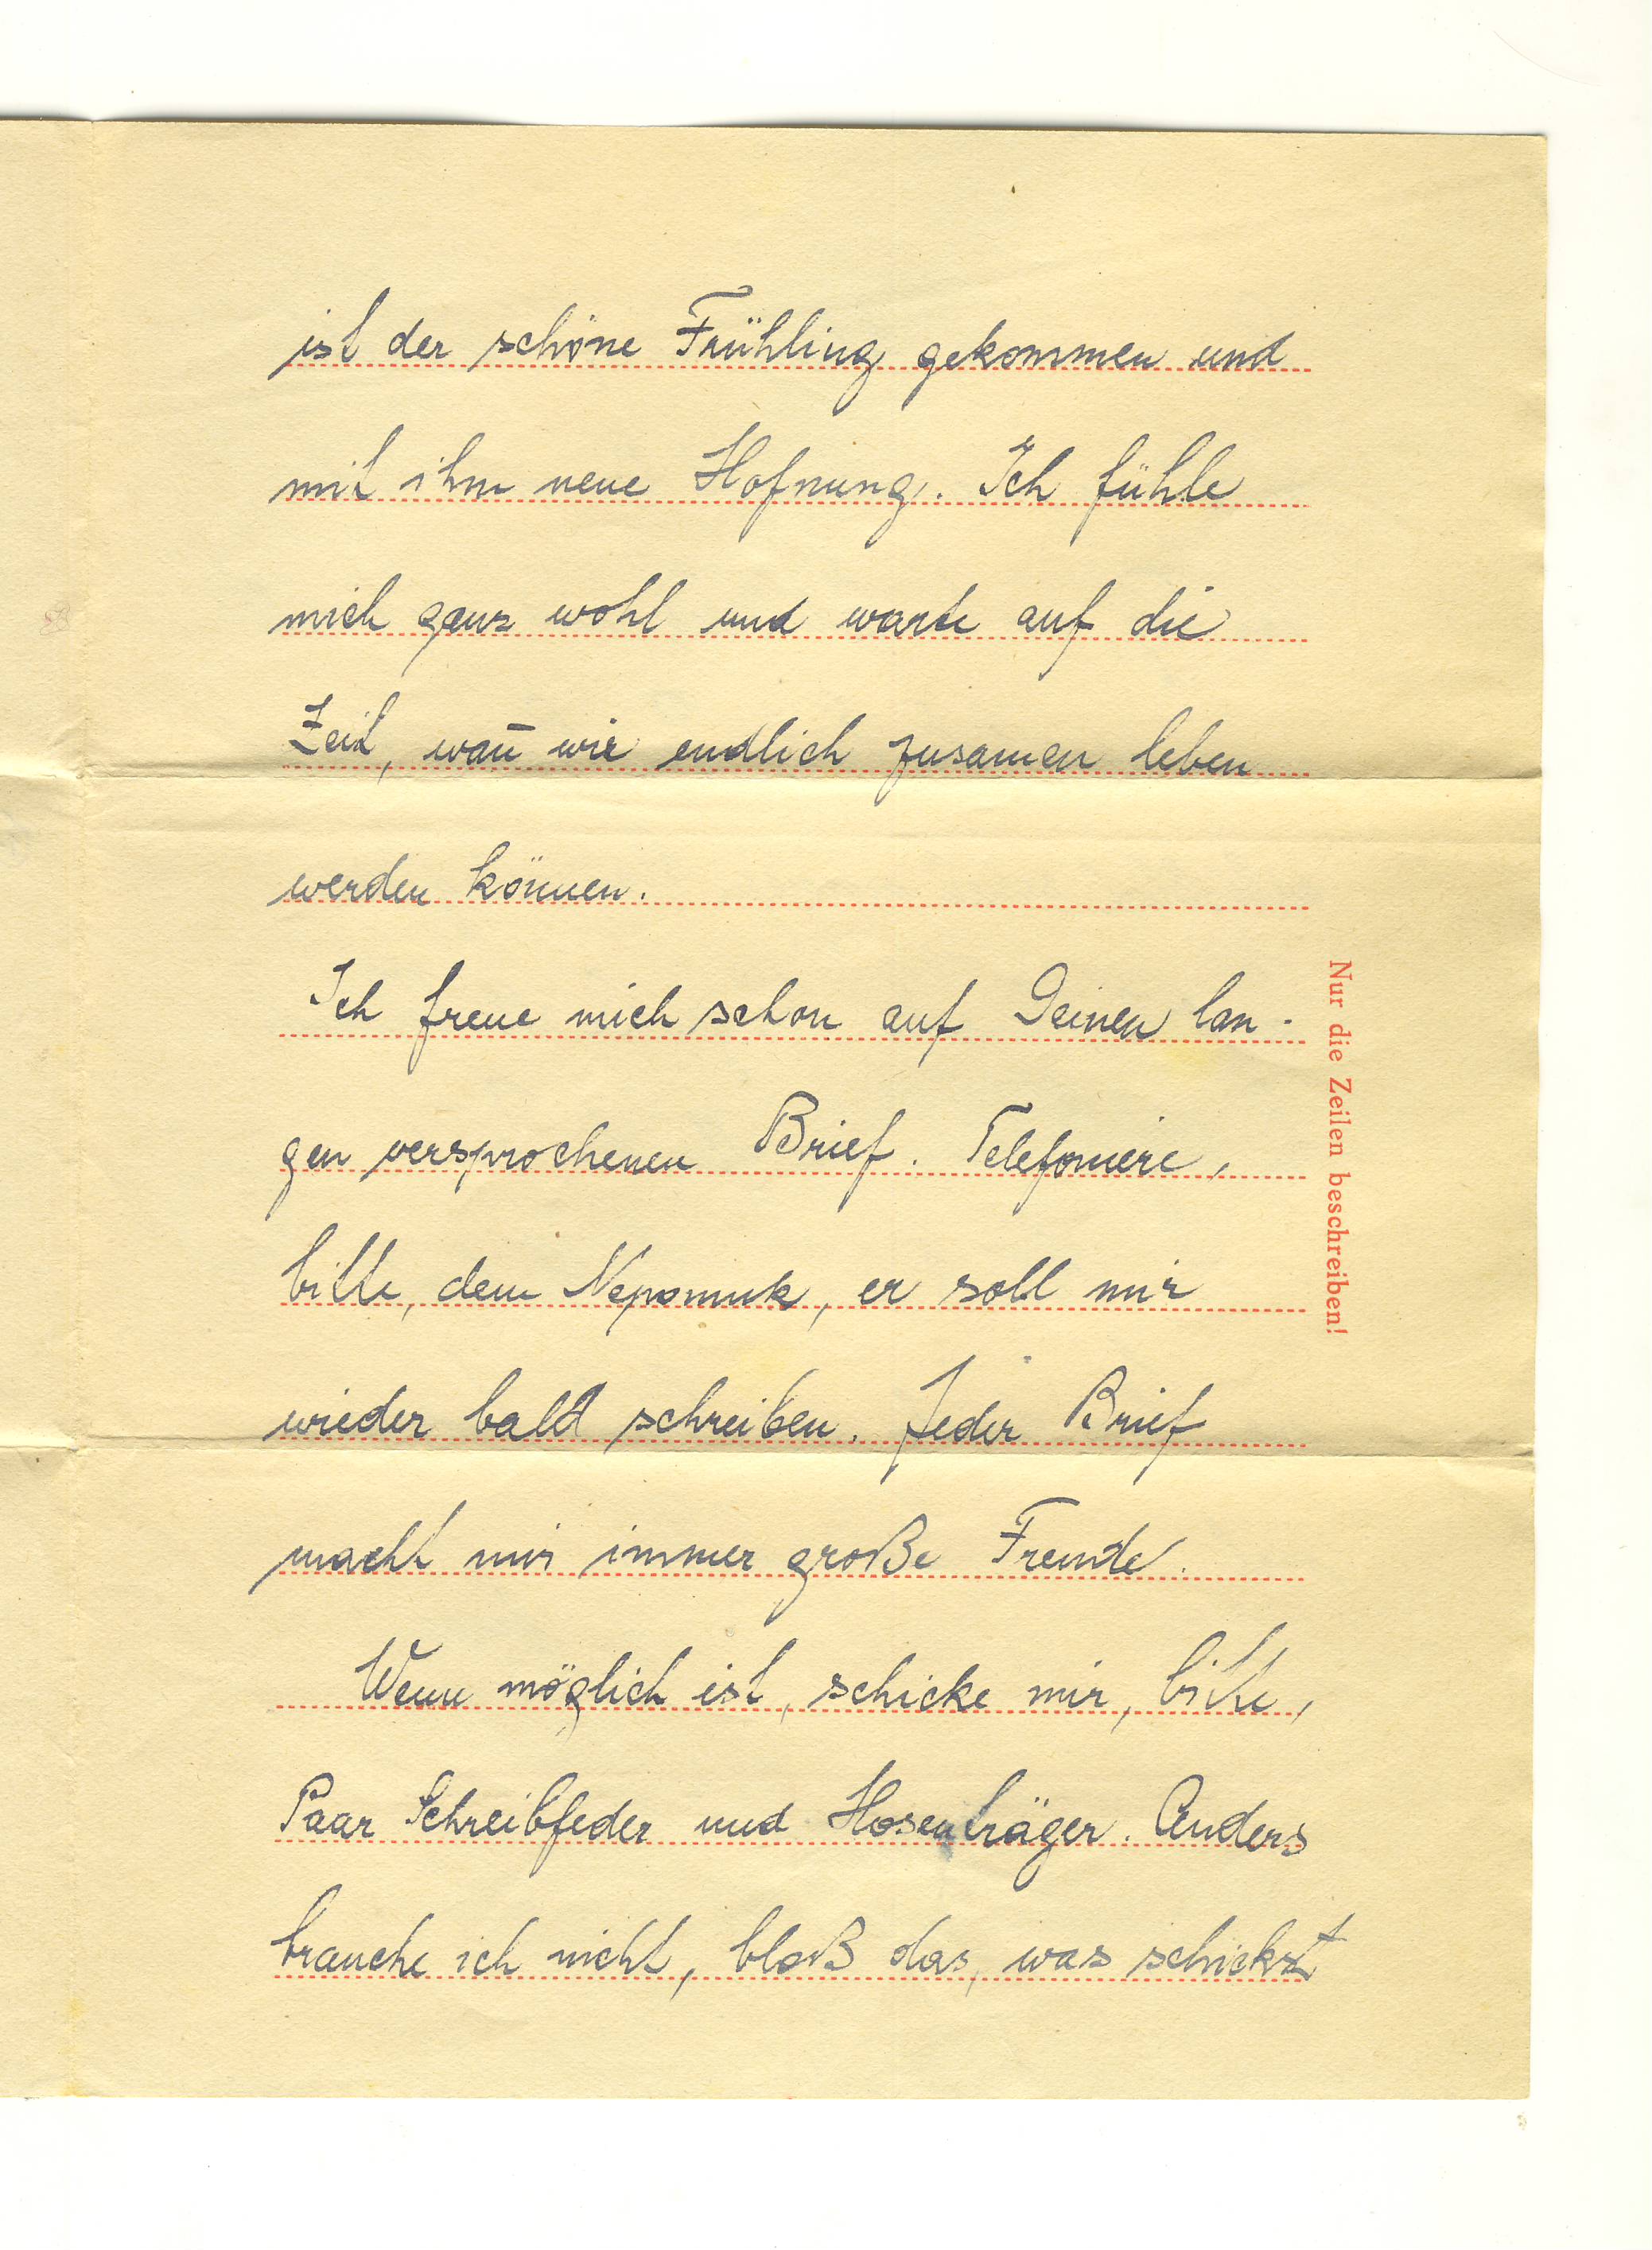 ist der schöne Frühling gekommen und
mit ihm neue Hofnung. Ich fühle
mich ganz wohl und warte auf die
Zeit, wan̄ wir endlich zusamen leben
werden können.
Ich freue mich schon auf Deinen lan-
gen versprochenen Brief. Telefoniere,
bitte, dem Nepomuk, er soll mir
wieder bald schreiben. Jeder Brief
macht mir immer große Freude.
Wenn möglich ist, schicke mir, bitte,
Paar Schreibfeder und Hosenträger. Anders
brauche ich nicht, bloß das, was schickst
Nur die Zeilen beschreiben!